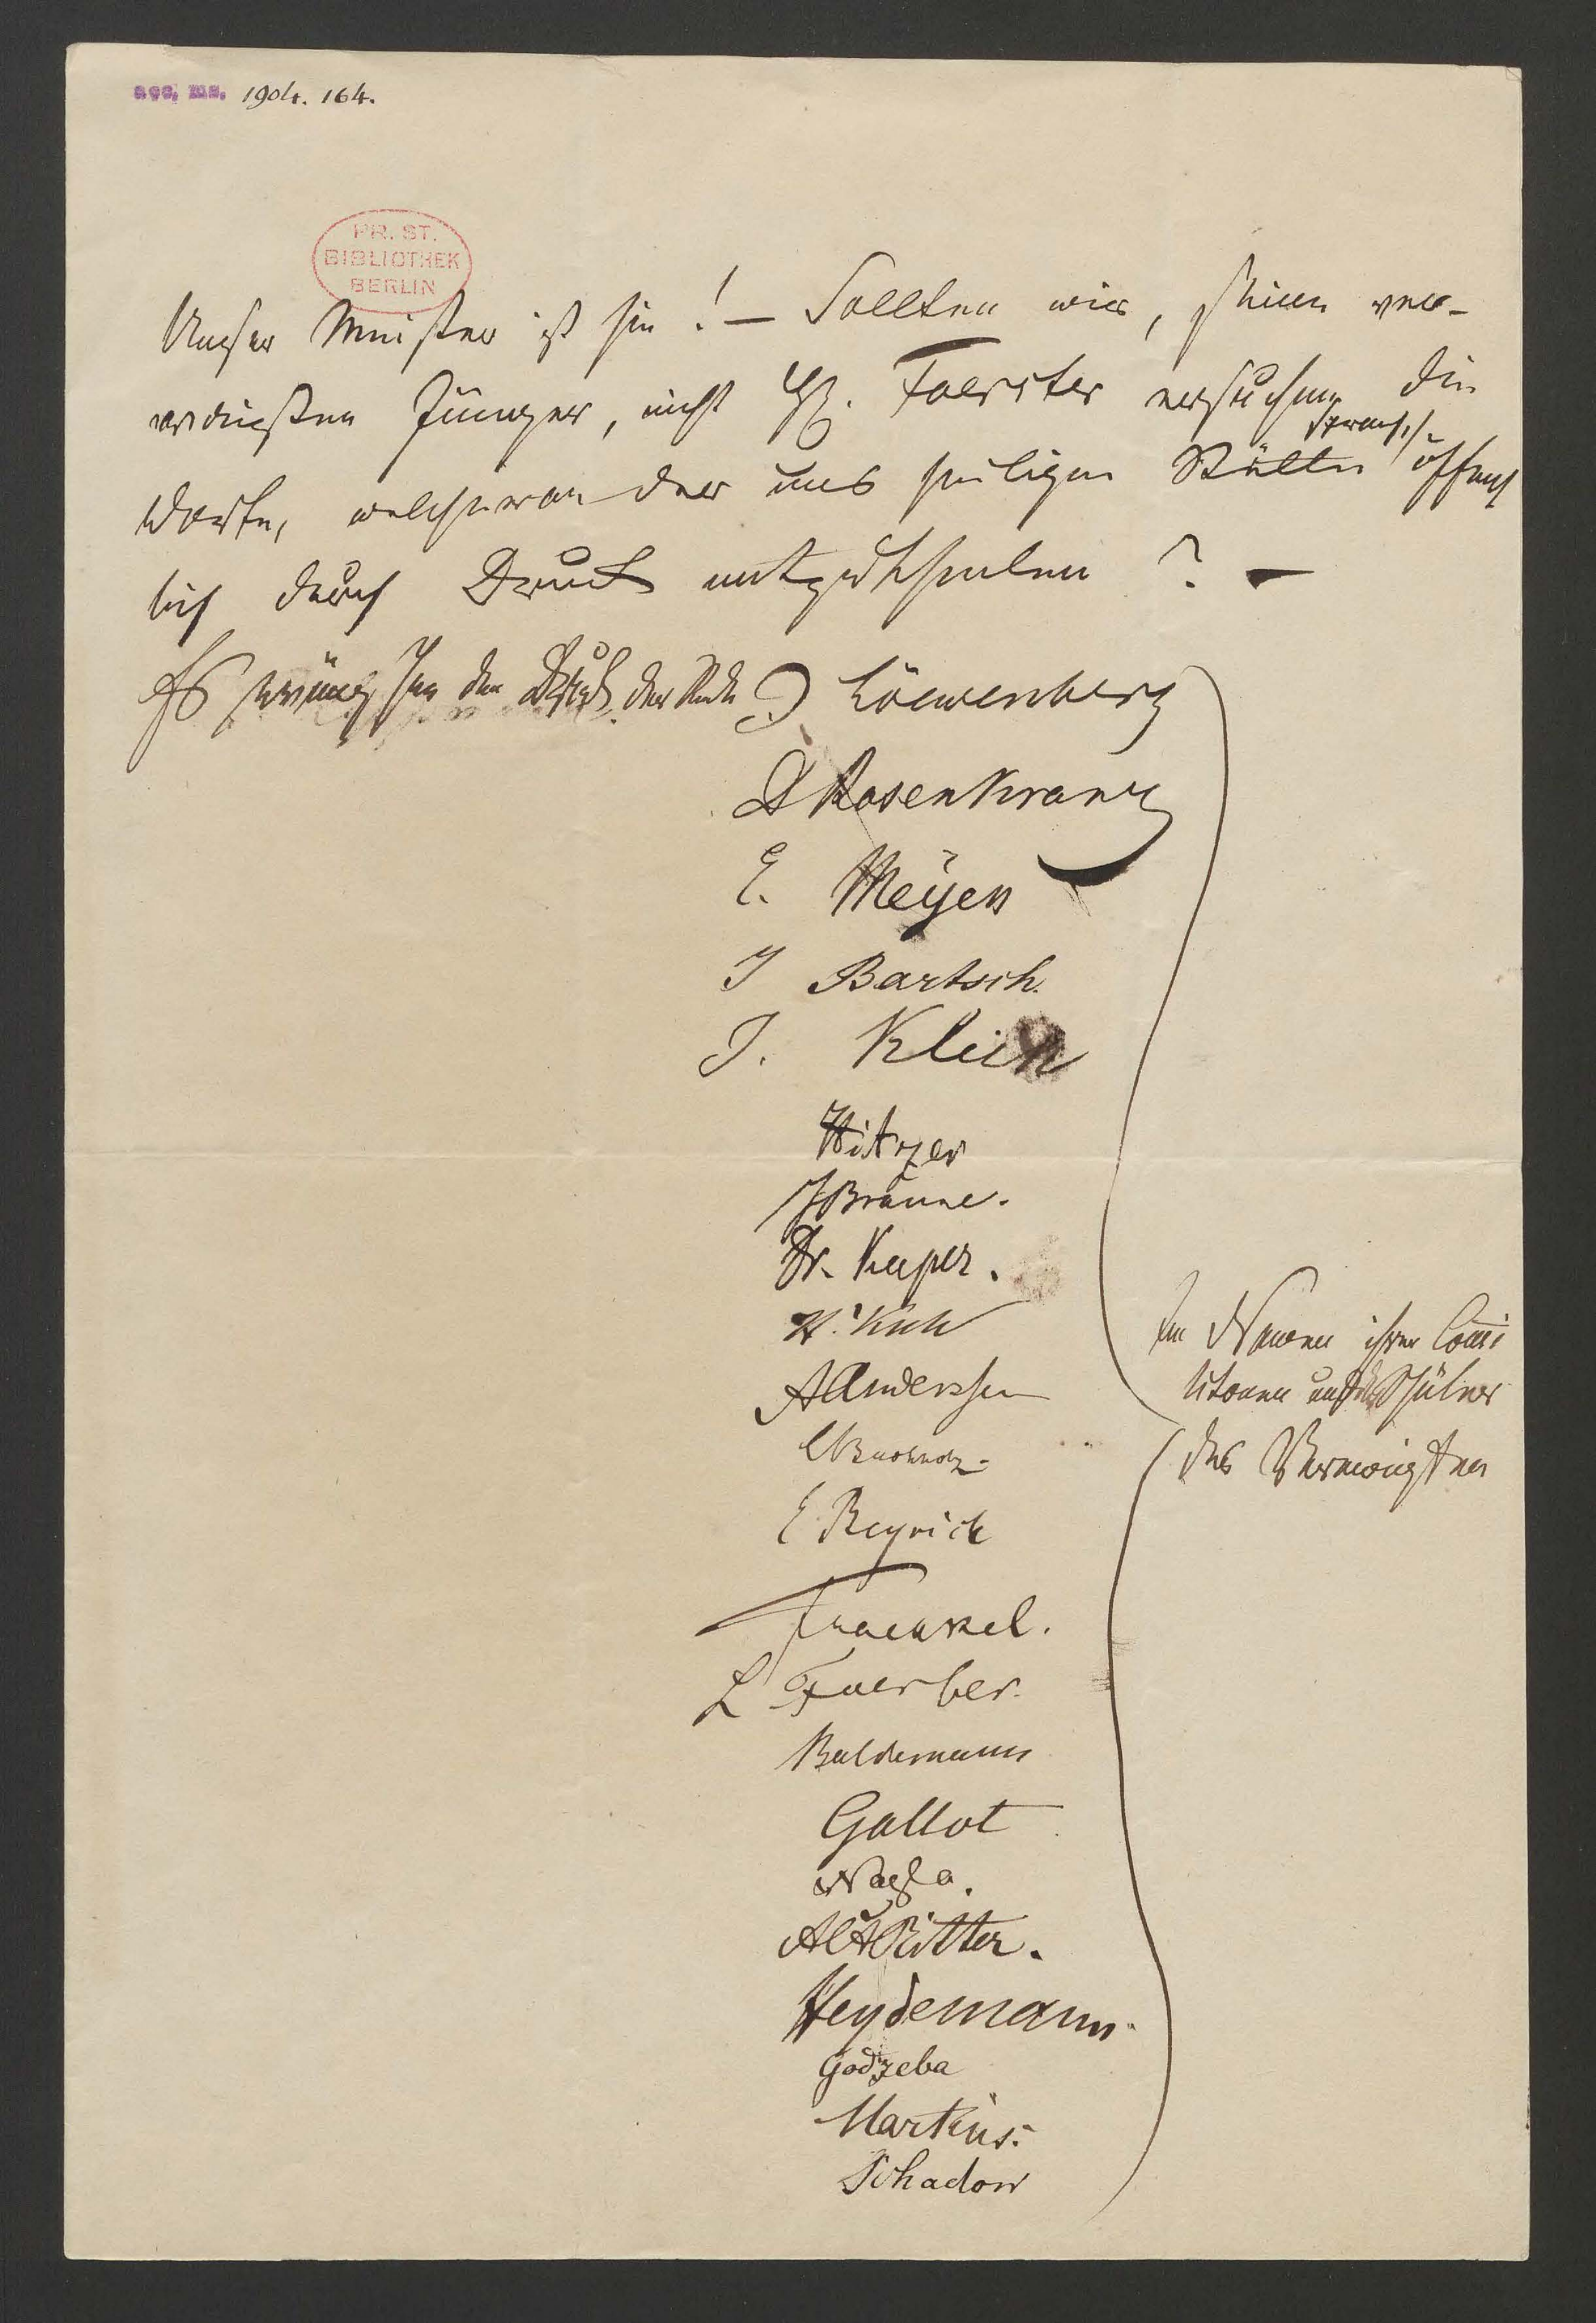 acc. ms. 1904. 164.
PR. ST.
BIBLIOTHEK
BERLIN
Unser Meister ist hin! — Sollten wir, seine ver-
waisten Jünger, nicht H. Foerster ersuchen, die
sprach,
Worte, welche er an der uns heiligen Stätte öffent
lich durch Druck mitzutheilen? —
den Druck der Rede J Löwenberg
Rosenkranz
E. Meyen
J Bartsch.
J. Klein
Hitzer
J Braune.
Dr. Kaper.
H. Küh
A Anderssen
E Beyrich
Fraenkel.
L Faerber.
Baldemann
Gallot
A Ritter.
Heydemann.
Godzeba
Martins.
Schadow
Im Namen ihrer Comi
litonen und Schüler
des Verewigten